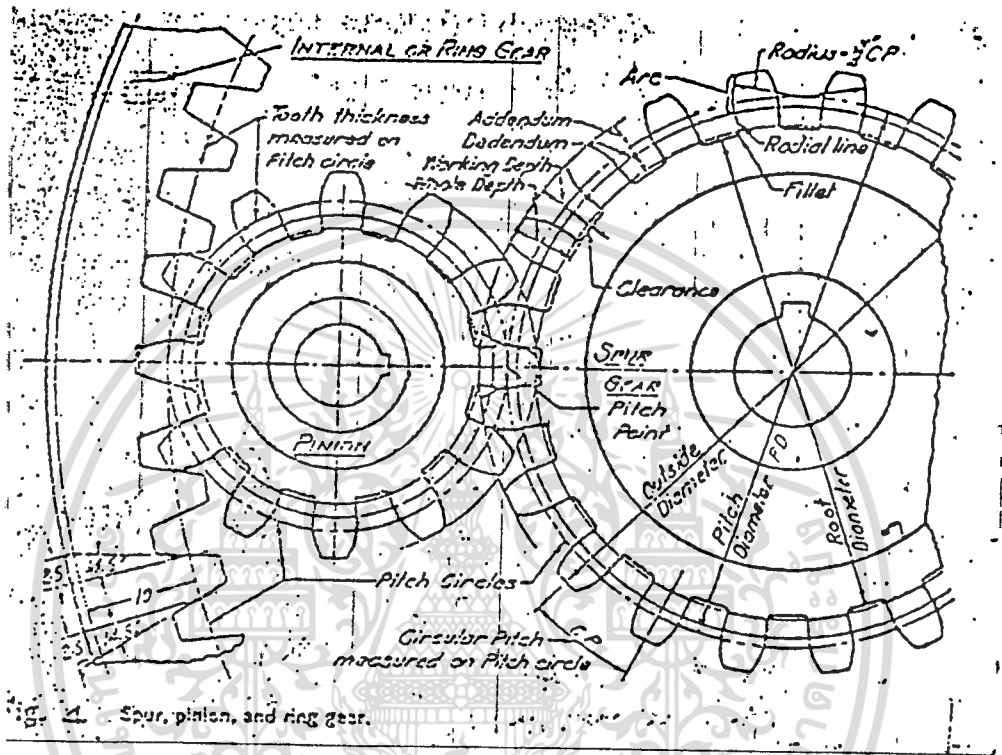 INTERNAL OR RING GEAR
Tooth thickness
measured on
Pitch circle
Addendum
Dedendum
Working Depth
Whole Depth
Arc
Radius = CP
Radial line
Fillet
Clearance
SPUR
GEAR
Pitch
Point
PINION
Outside
Diameter
Pitch
Diameter
PD
Root
Diameter
Pitch Circles
Circular Pitch
measured on Pitch circle
CP
10
Spur, pinion, and ring gear.